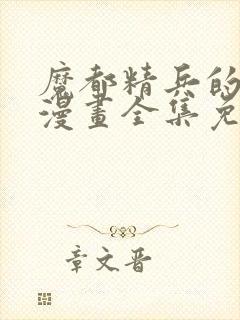 魔都精兵的
漫畫全集免
章文晋